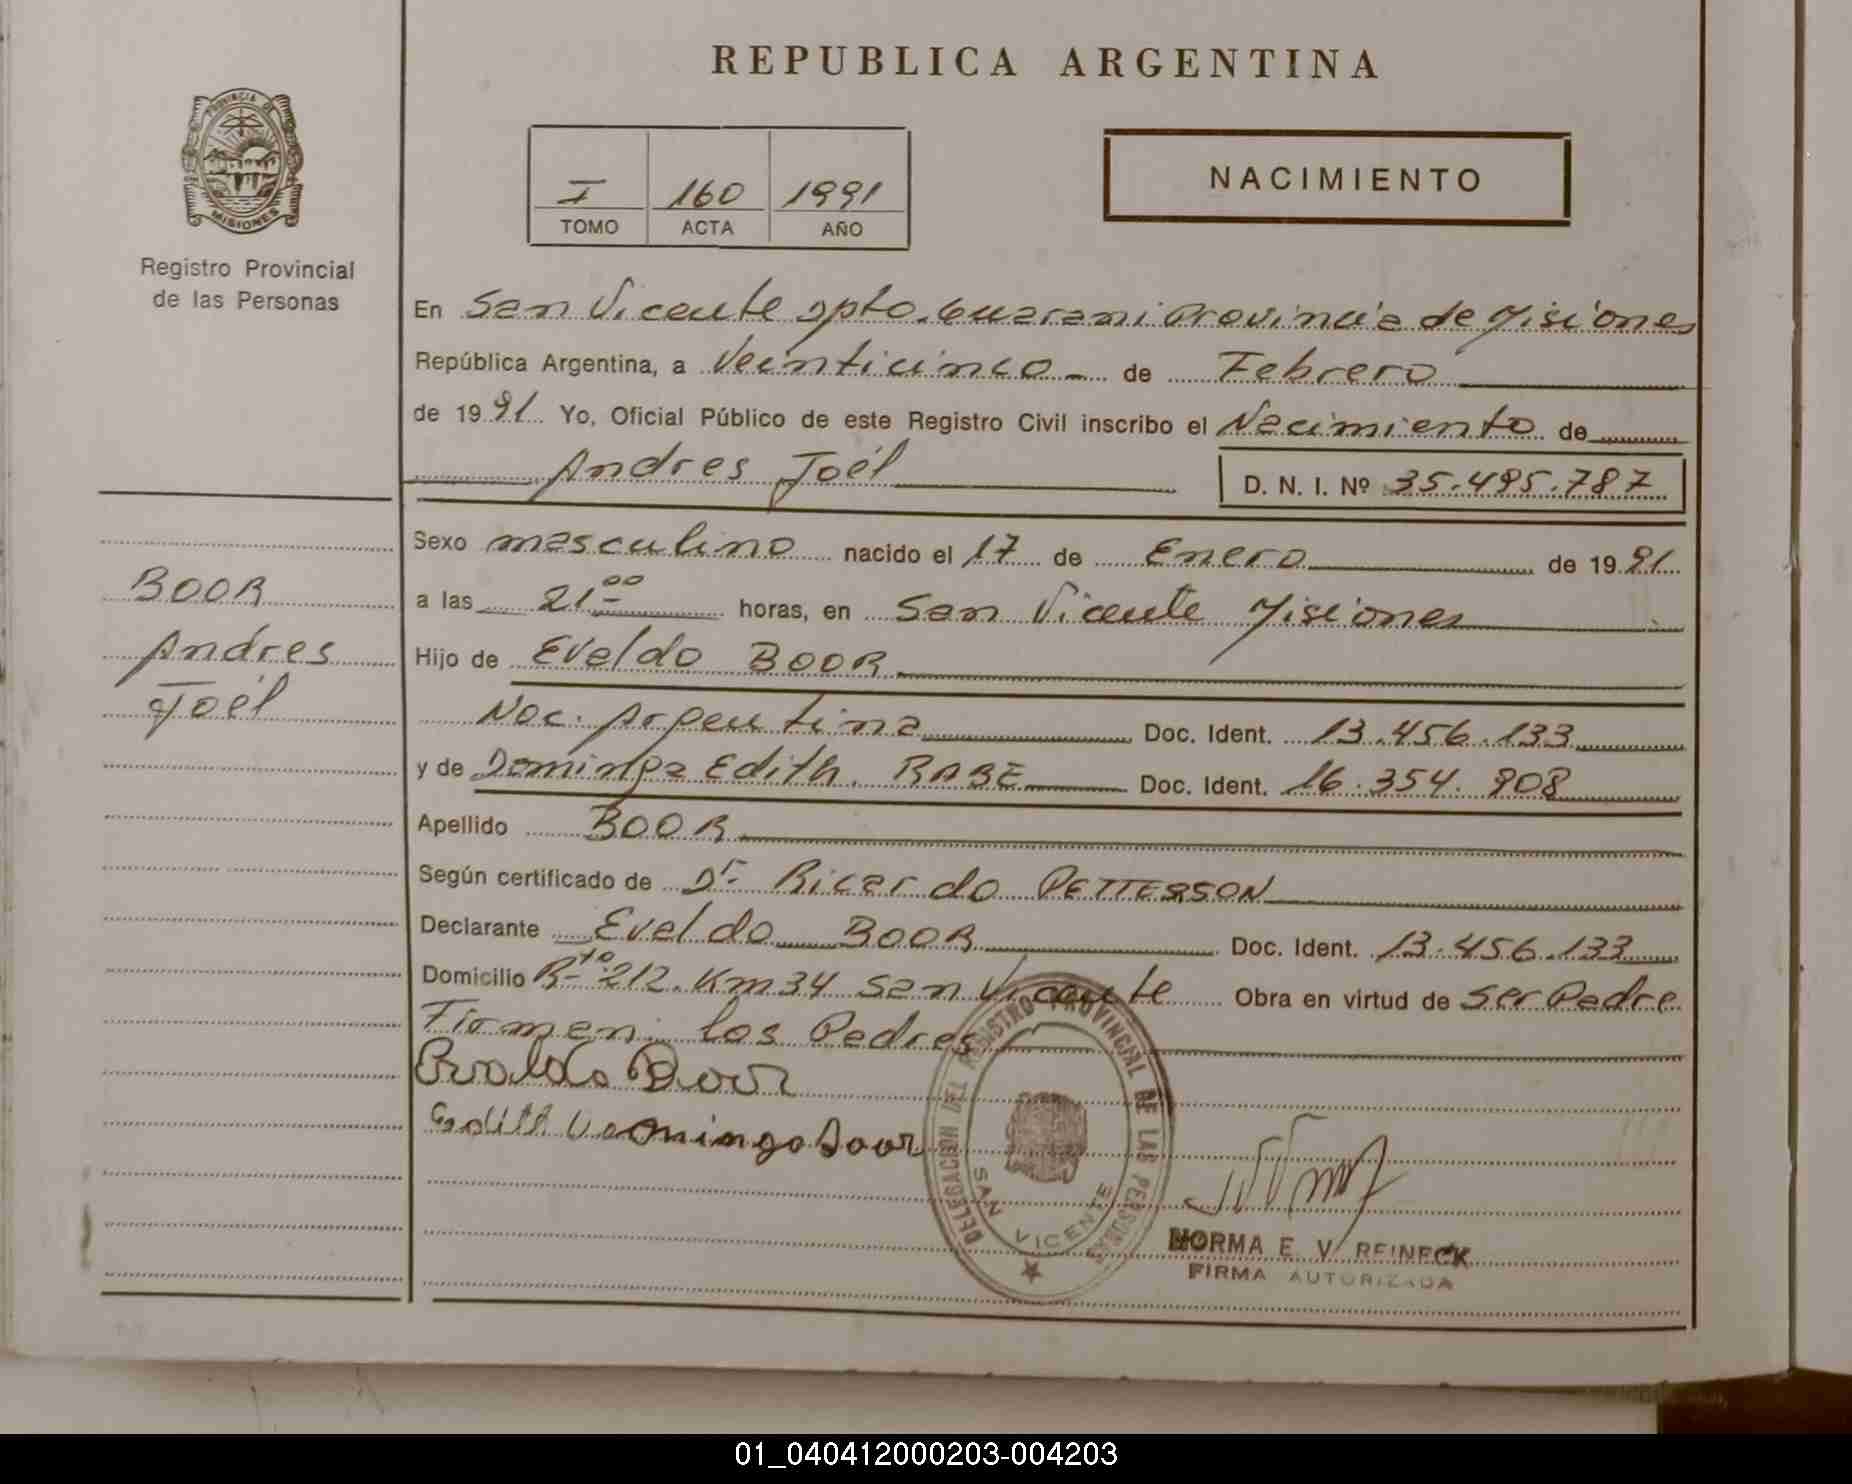 REPUBLICA ARGENTINA
PROVINCIA DE
MISIONES
Registro Provincial
de las Personas
I 160 1991
TOMO ACTA AÑO
NACIMIENTO
En San Vicente Dpto. Guarani Provincia de Misiones
República Argentina, a Veinticinco - de Febrero
de 1991 Yo, Oficial Público de este Registro Civil inscribo el Nacimiento de
Andres Joél
D. N. I. Nº 35.495.787
BOOR
Andres
Joél
Sexo masculino nacido el 17 de Enero de 1991
a las 21 00 horas, en San Vicente Misiones
Hijo de Evaldo BOOR
Nac. Argentina Doc. Ident. 13.456.133
y de Dominga Edith. RABE Doc. Ident. 16.354.908
Apellido BOOR
Según certificado de Dr Ricardo PETTERSON
Declarante Evaldo BOOR Doc. Ident. 13.456.133
Domicilio R-ta 212. Km 34 San Vicente Obra en virtud de ser Padre
Firman: los Padres
Evaldo Boor
Edith Dominga Boor
DELEGACION DEL REGISTRO PROVINCIAL DE LAS PERSONAS
SAN VICENTE
NORMA E. V. REINECK
FIRMA AUTORIZADA
01_040412000203-004203